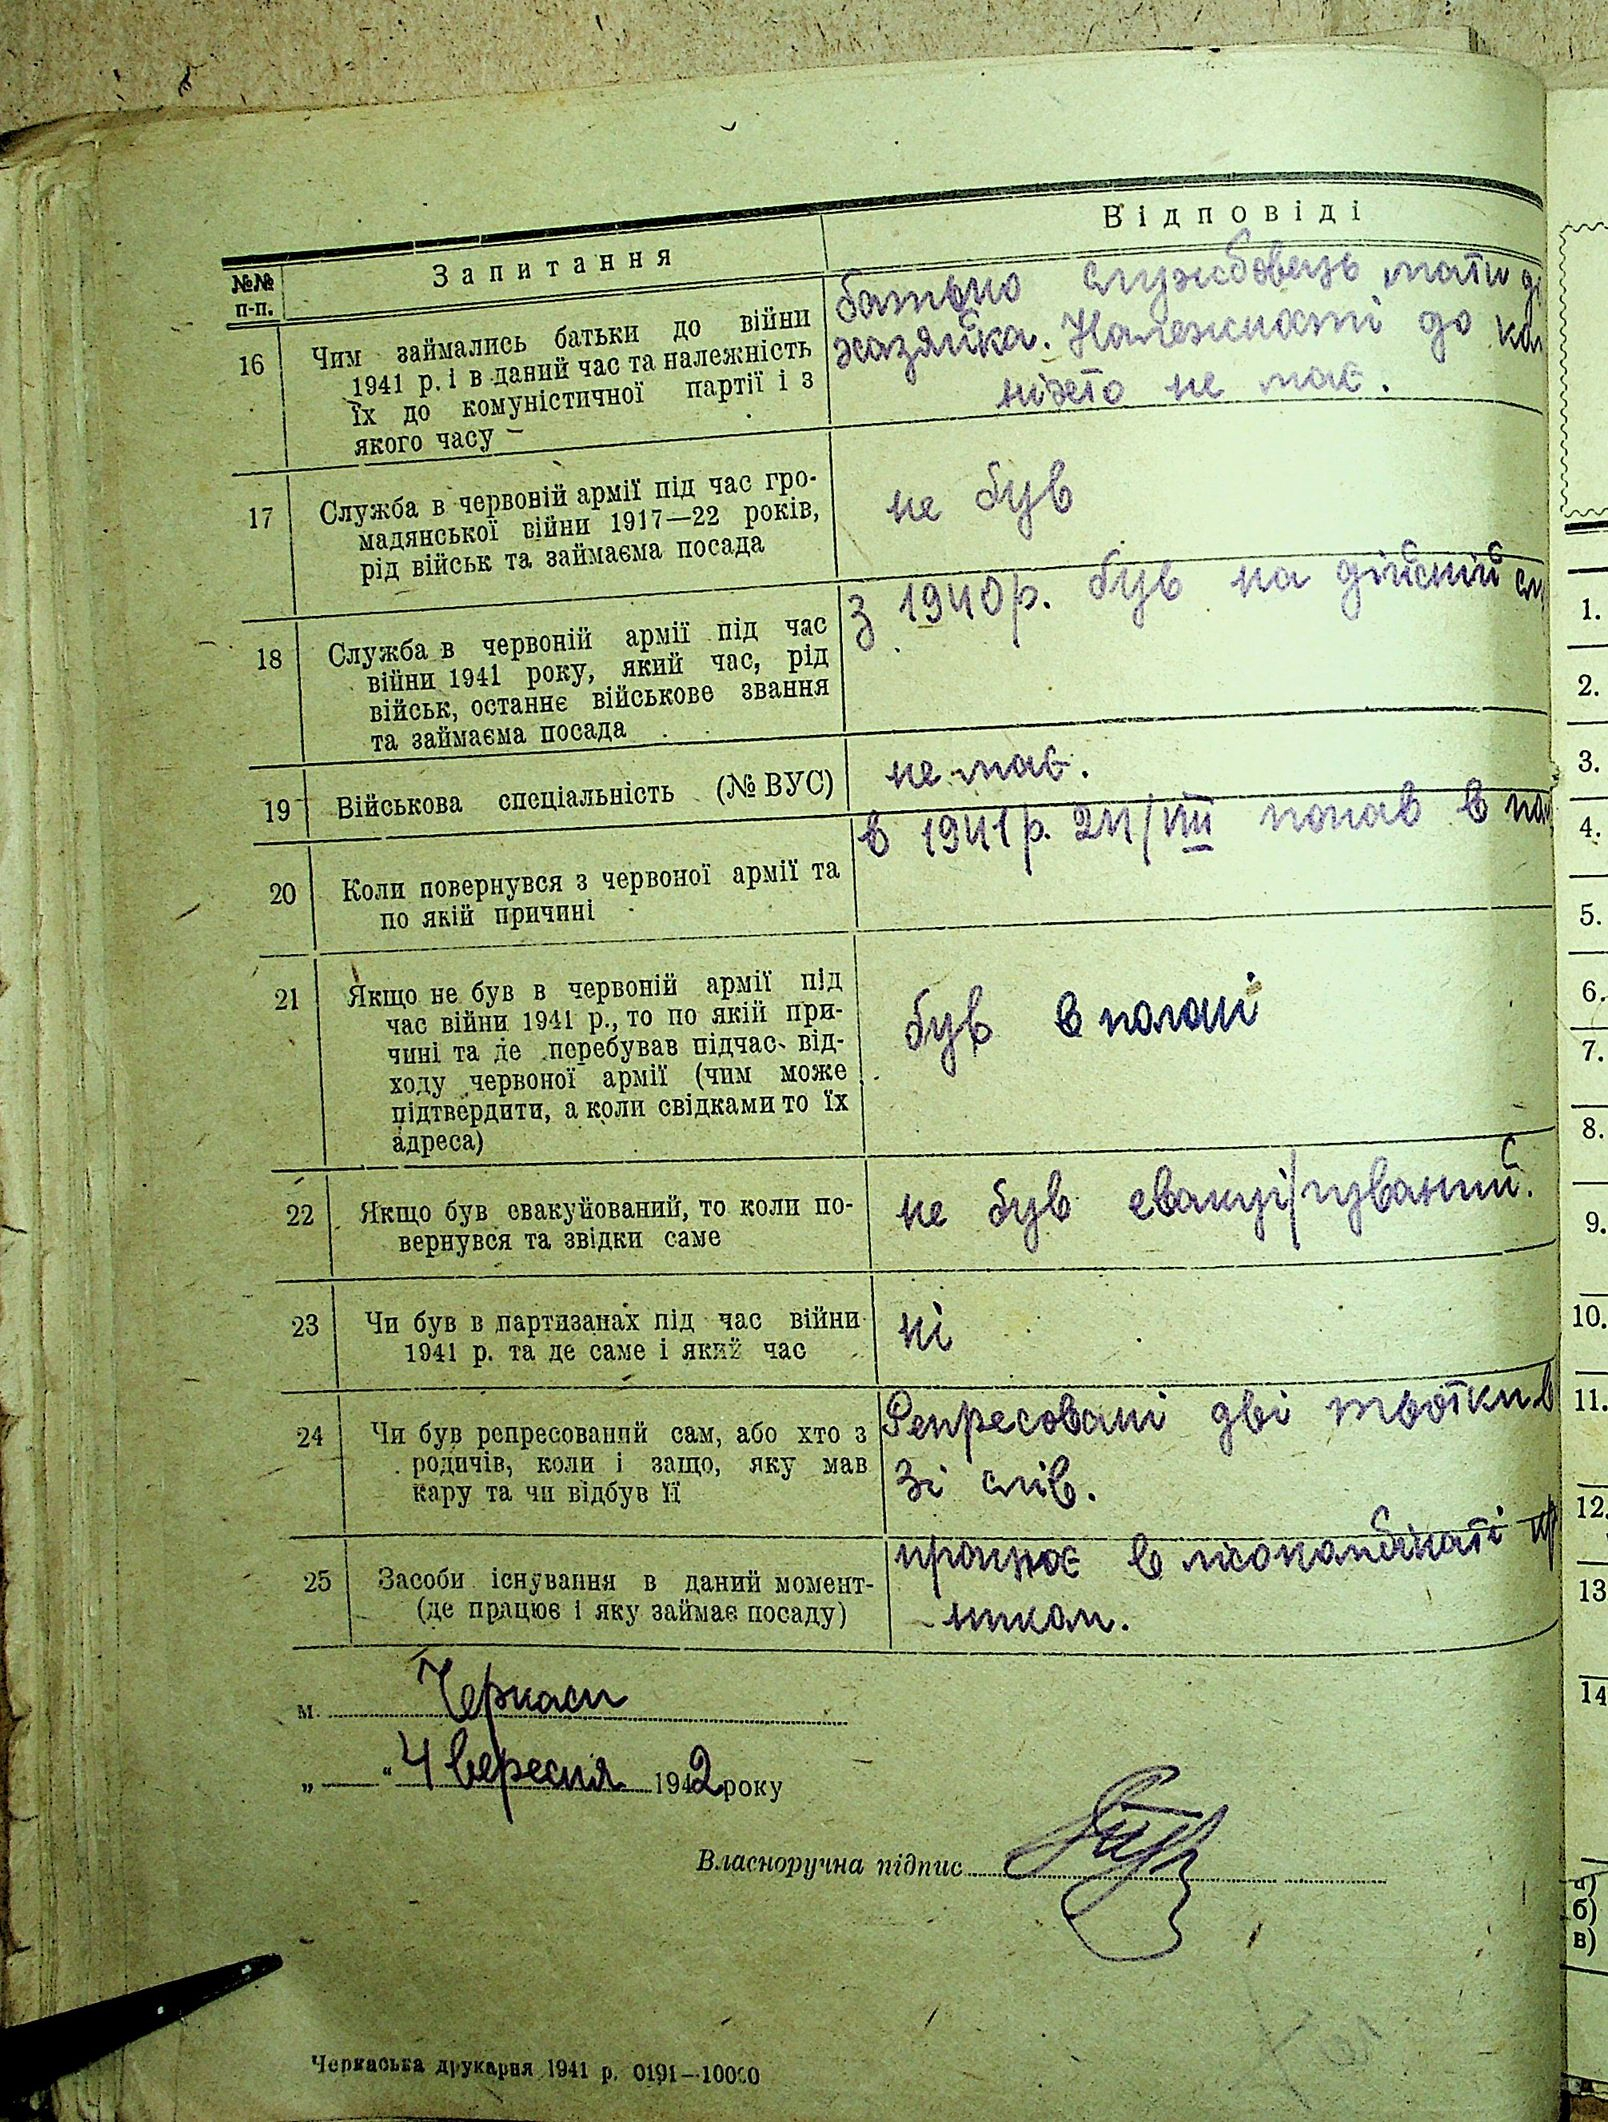 Відповіді
№№ п-п.
Запитання
16
Чим займались батьки до війни
1941 р. і в даний час та належність
їх до комуністичної партії і з
якого часу
батько службовець, мати до
хазяйка. Належності до ком
ніхто не має.
17
Служба в червоній армії під час гро-
мадянської війни 1917—22 років,
рід військ та займаєма посада
не був
18
Служба в червоній армії під час
війни 1941 року, який час, рід
військ, останнє військове звання
та займаєма посада
з 1940 р. був на дійсній сл
19
Військова спеціальність (№ ВУС)
не має.
20
Коли повернувся з червоної армії та
по якій причині
в 1941 р. 24/VIII попав в пол
21
Якщо не був в червоній армії під
час війни 1941 р., то по якій при-
чині та де перебував підчас від-
ходу червоної армії (чим може
підтвердити, а коли свідками то їх
адреса)
був в полоні
22
Якщо був евакуйований, то коли по-
вернувся та звідки саме
не був
23
Чи був в партизанах під час війни
1941 р. та де саме і який час
ні
24
Чи був репресований сам, або хто з
родичів, коли і защо, яку мав
кару та чи відбув її
Репресовані дві тьотки в
Зі слів.
25
Засоби існування в даний момент-
(де працює і яку займає посаду)
працює в лісокомбінаті
-ником.
м. Черкаси
„—“ 4 вересня 1942 року
Власноручна підпис
Черкаська друкарня 1941 р. 0191—10000
1.
2.
3.
4.
5.
6.
7.
8.
9.
10.
11.
12.
13
14
а)
б)
в)